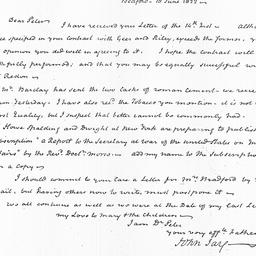 Bedford - 18 June 1822
Dear Peter
I have received your Letter of the 14th Inst - altho
specified in your contract with Gees and Riley, exceeds the former, y
opinion you did well in agreeing to it. I hope the contract will
fully performed; and that you may be equally successful wi
Redion
Mr. Barclay has sent the two casks of roman cement - we rece
on Yesterday. I have also recd. the Tobacco you mention. it is not
Quality, but I suspect that better cannot be commonly had.
Howe Spalding and Dwight of New York are preparing to publish
"a Report to the Secretary at war of the united States on Ind
fairs" by the Revd. Doctr. Morse. add my name to the Subscription
a copy
I should commit to your care a Letter for Mrs. Bradford by th
ail, but having others now to write, must postpone it
we all continue as well as we were at the Date of my last Le
my Love to Mary & the children
I am Dr. Peter
your very affte. Father
John Jay